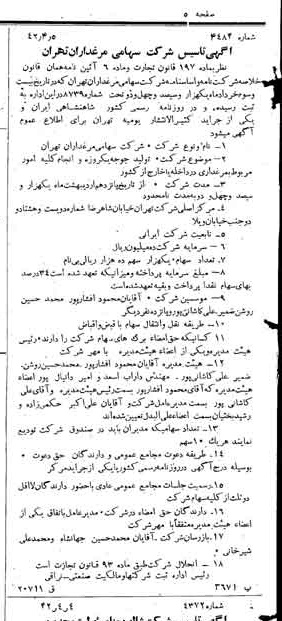 صفحه ۵
شماره ۳۴۸۴ ۴۲/۴/۵
آگهی تاسیس شرکت سهامی مرغداران تهران
نظر بماده ۱۹۷ قانون تجارت و ماده ۶ آئین نامه همان قانون
خلاصه شرکت نامه و اساسنامه شرکت سهامی مرغداران تهران که در تاریخ بیست
و سوم خرداد ماه یکهزار و سیصد و چهل و دو تحت شماره ۸۷۳۹ در این اداره به
ثبت رسیده و در روزنامه رسمی کشور شاهنشاهی ایران و
یکی از جراید کثیرالانتشار یومیه تهران برای اطلاع عموم
آگهی میشود
۱- نام و نوع شرکت • شرکت سهامی مرغداران تهران
۲- موضوع شرکت • تولید جوجه یکروزه و انجام کلیه امور
مربوط بمرغداری در داخله یا خارج از کشور
۳- مدت شرکت • از تاریخ پانزدهم اردیبهشت ماه یکهزار و
سیصد و چهل و دو بمدت نامحدود
۴- مرکز اصلی شرکت تهران خیابان شاهرضا شماره دویست و هشتاد و
دو جنب خیابان ویلا
۵- تابعیت شرکت ایرانی
۶- سرمایه شرکت ده میلیون ریال
۷- تعداد سهام • یکهزار سهم ده هزار ریالی بی نام
۸- مبلغ سرمایه پرداخته و میزانیکه تعهد شده است ۳۴ درصد
بهای سهام نقدا پرداخت و بقیه تعهد شده است
۹- موسسین شرکت • آقایان محمود افشارپور محمد حسین
روشن ضمیر علی کاشانی پور و پانزده نفر دیگر
۱۰- طریقه نقل و انتقال سهام با قبض و اقباض
۱۱- کسانیکه حق امضاء برگ های سهام شرکت را دارند • رئیس
هیئت مدیره و یکی از اعضاء هیئت مدیره با مهر شرکت
۱۲- هیئت مدیره آقایان محمود افشارپور • محمد حسین روشن
ضمیر علی کاشانی پور • مهندس داراب اسعد و امیر دانیال پور اعضاء
هیئت مدیره که آقای محمود افشارپور بسمت رئیس هیئت مدیره و آقای علی
کاشانی پور بسمت مدیر عامل شرکت و آقایان علی اکبر حکمی زاده و
رشید بختیان بسمت اعضاء علی البدل تعیین شده اند
۱۳- تعداد سهامیکه مدیران باید در صندوق شرکت تودیع
نمایند هر یک ۱۰ سهم
۱۴- طریقه دعوت مجامع عمومی و دارندگان حق دعوت •
بوسیله درج آگهی در روزنامه رسمی کشور یا یکی از جراید مرکز
۱۵- رسمیت جلسات مجامع عمومی عادی با حضور دارندگان لااقل
دو ثلث از کلیه سهام شرکت
۱۶- دارندگان حق امضاء در شرکت • مدیر عامل باتفاق یکی از
اعضاء هیئت مدیره متفقا با مهر شرکت
۱۷- بازرسان شرکت • آقایان محمد حسین جهانشاه و محمد علی
شیرخانی •
۱۸- انحلال شرکت طبق ماده ۹۳ قانون تجارت است
رئیس اداره ثبت شرکتها و مالکیت صنعتی - راقی
پ ۳۶۷۱ ق ۲۰۷۱۱
شماره ۴۳۷۲ ۴۲/۴/۴